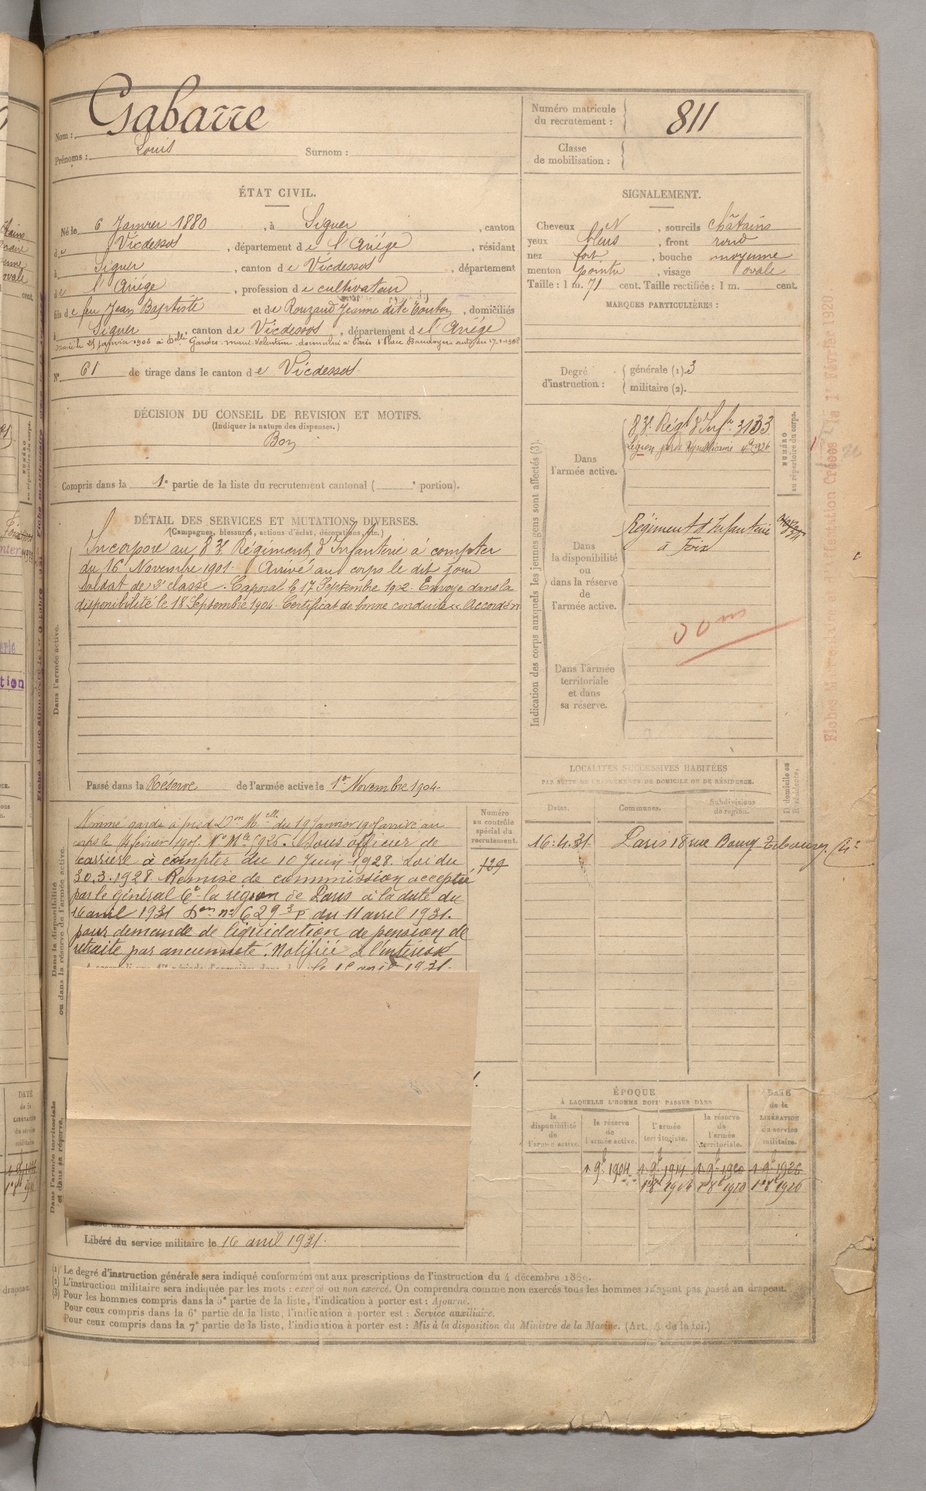 Nom : Gabarre
Prénoms : Louis Surnom :
Numéro matricule
du recrutement : 811
Classe
de mobilisation :
ÉTAT CIVIL.
Né le 6 Janvier 1880, à Siguer, canton
de Vicdessos, département de l'Ariège, résidant
à Siguer, canton de Vicdessos, département
de l'Ariège, profession de cultivateur
fils de feu Jean Baptiste et de Rouzaud Jeanne dite, domiciliés
à Siguer, canton de Vicdessos, département de l'Ariège
Marié le 25 Janvier 1908 à Delle
N° 61 de tirage dans le canton de Vicdessos
SIGNALEMENT.
Cheveux, sourcils châtains
yeux bleus, front rond
nez fort, bouche moyenne
menton pointu, visage ovale
Taille : 1 m. 71 cent. Taille rectifiée : 1 m. cent.
MARQUES PARTICULIÈRES :
Degré
d'instruction :
générale (1) 3
militaire (2).
DÉCISION DU CONSEIL DE REVISION ET MOTIFS.
(Indiquer la nature des dispenses.)
Bon
Compris dans la 1e partie de la liste du recrutement cantonal ( e portion).
DÉTAIL DES SERVICES ET MUTATIONS DIVERSES.
(Campagnes, blessures, actions d'éclat, décorations, etc.)
Incorporé au 83e Régiment d'Infanterie à compter
du 16 Novembre 1901. Arrivé au corps le dit jour
soldat de 2e classe. Caporal le 17 Septembre 1902. Envoyé dans la
disponibilité le 18 Septembre 1904. Certificat de bonne conduite Accordé
Dans l'armée active.
Passé dans la Réserve de l'armée active le 1er Novembre 1904.
Indication des corps auxquels les jeunes gens sont affectés (3).
Dans
l'armée active.
83e Régt d'Infie 3133
Légion garde Républicaine
NUMÉRO
au répertoire du corps.
Dans
la disponibilité
ou
dans la réserve
de
l'armée active.
Régiment d'Infanterie
à Foix
Dans l'armée
territoriale
et dans
sa réserve.
LOCALITÉS SUCCESSIVES HABITÉES
PAR SUITE DE CHANGEMENTS DE DOMICILE OU DE RÉSIDENCE.
Dates. Communes. Subdivisions
de région.
16.4.31. Paris 18 rue Bourg Tibourg (4e
Numéro
au contrôle
spécial du
recrutement.
139
Dans la disponibilité
ou dans la réserve de l'armée active.
Nommé garde à pied du 19 Janvier 1907 arrivé au
corps le février 1907. Sous officier de
carrière à compter du 10 Juin 1928. Loi du
30.3.1928. Remise de commission acceptée
par le général Ct la région de Paris à la date du
16 avril 1931 Don n° 629 3 P du 11 avril 1931.
pour demande de liquidation de pension de
retraite par ancienneté. Notifiée à l'intéressé
Dans l'armée territoriale
et dans sa réserve.
Libéré du service militaire le 16 avril 1931.
ÉPOQUE
À LAQUELLE L'HOMME DOIT PASSER DANS
la
disponibilité
de
l'armée active.
la réserve
de
l'armée active.
l'armée
territoriale.
la réserve
de
l'armée
territoriale.
DATE
de la
LIBÉRATION
du service
militaire.
1er 9bre 1904 1er 9bre 1914 1er 9bre 1920 1er 9bre 1926
(1) Le degré d'instruction générale sera indiqué conformément aux prescriptions de l'instruction du 4 décembre 1889.
(2) L'instruction militaire sera indiquée par les mots : exercé ou non exercé. On comprendra comme non exercés tous les hommes n'ayant pas passé au drapeau.
(3) Pour les hommes compris dans la 5e partie de la liste, l'indication à porter est : Ajourné.
Pour ceux compris dans la 6e partie de la liste, l'indication à porter est : Service auxiliaire.
Pour ceux compris dans la 7e partie de la liste, l'indication à porter est : Mis à la disposition du Ministre de la Marine. (Art. 4 de la loi.)